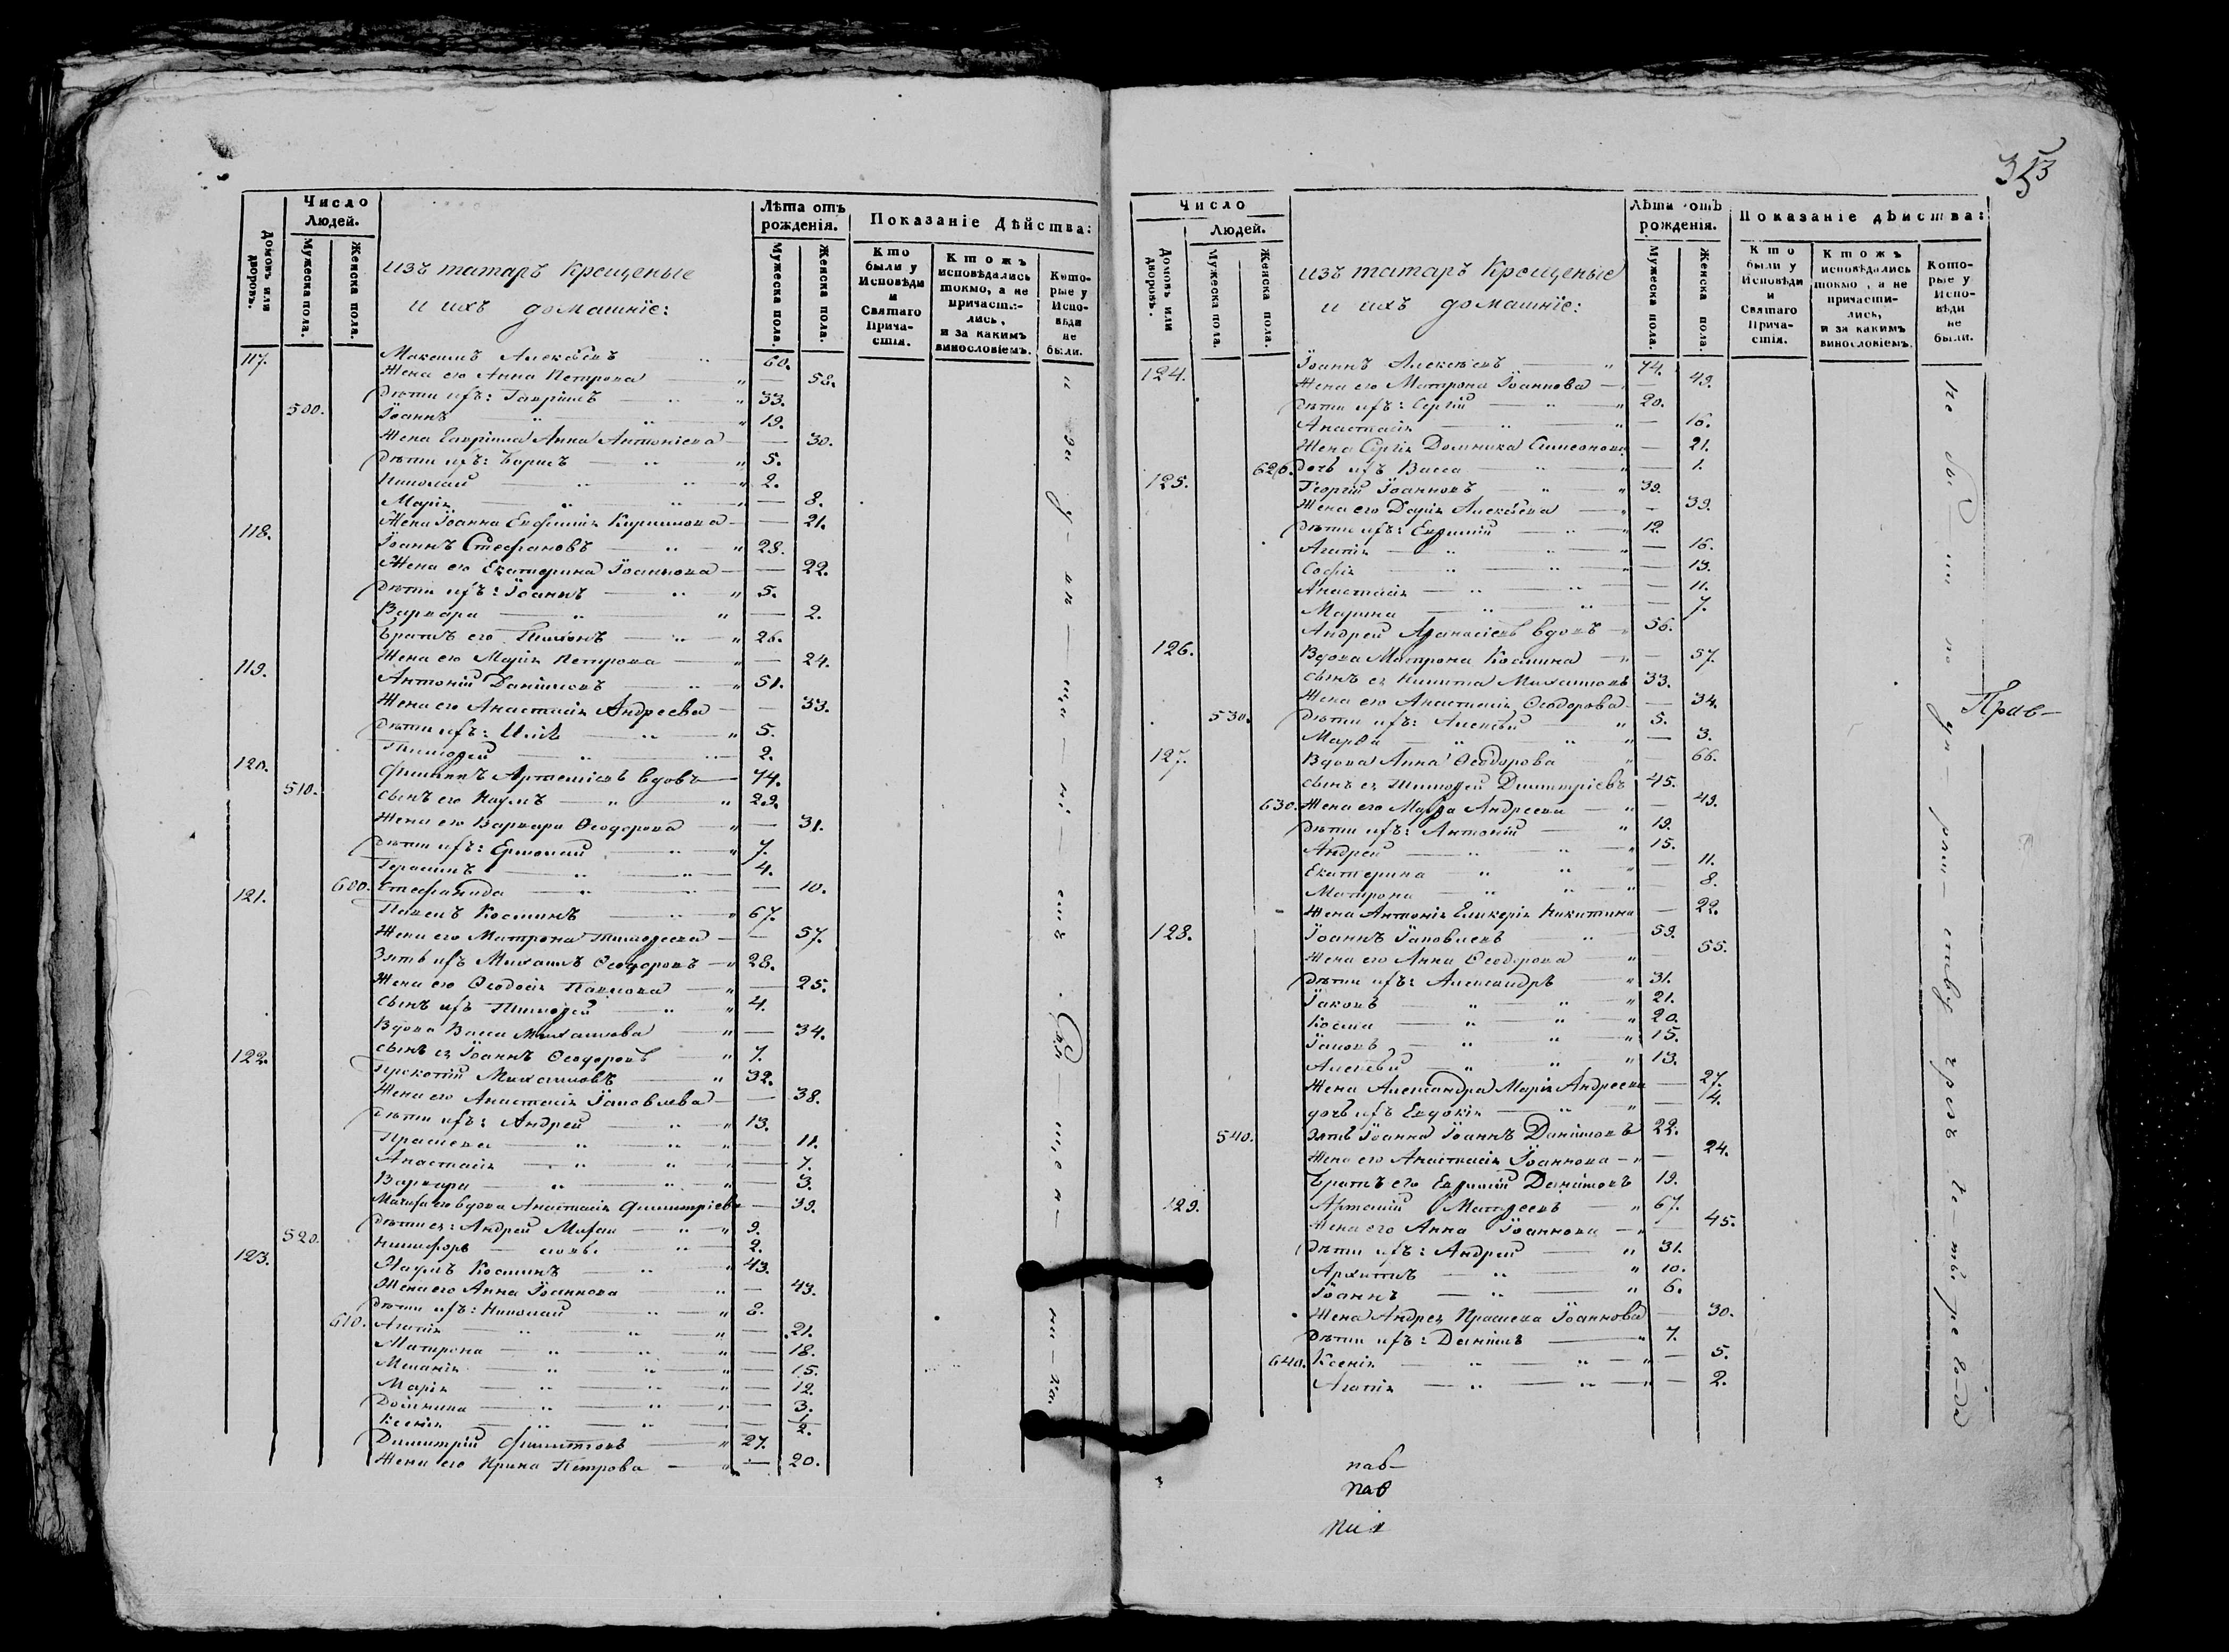 353
Число
Людей.
Домовъ или дворовъ.
Мужеска пола.
Женска пола.
изъ татаръ Крещеные
и ихъ домашніе:
Лѣта отъ
рожденія.
Мужеска пола.
Женска пола.
Показаніе Дѣйства:
Кто были у Исповѣди и Святаго Причастія.
Ктожъ исповѣдались токмо, а не причастились, и за какимъ винословіемъ.
Которые у Исповѣди не были.
117. Максимъ Алексѣевъ 60.
Жена его Анна Петрова — 58.
500. Дѣти ихъ: Гавріилъ 33.
Іоаннъ 19.
Жена Гавріила Анна Антоніева — 30.
Дѣти ихъ: Борисъ 5.
Николай 2.
Марія — 8.
Жена Іоанна Евфимія Кириллова — 21.
118. Іоаннъ Стефановъ 28.
Жена его Екатерина Іоаннова — 22.
Дѣти ихъ: Іоаннъ 5.
Варвара — 2.
Братъ его 26.
Жена его Марія Петрова — 24.
119. Антоній Даніиловъ 51.
Жена его Анастасія Андреева — 33.
Дѣти ихъ: Илія 5.
Тимоѳей 2.
120. Филиппъ Артеміевъ вдовъ 74.
510. сынъ его Наумъ 29.
Жена его Варвара Ѳеодорова — 31.
Дѣти ихъ: Ермолай 7.
Герасимъ 4.
600. Стефанида — 10.
121. Павелъ Косминъ 67.
Жена его Матрона Тимоѳеева — 57.
Зять ихъ Михаилъ Ѳеодоровъ 28.
Жена его Ѳеодосія Павлова — 25.
сынъ ихъ Тимоѳей 4.
Вдова Васса Михаилова — 34.
сынъ ея Іоаннъ Ѳеодоровъ 7.
122. Прокопій Михаиловъ 32.
Жена его Анастасія Іаковлева — 38.
Дѣти ихъ: Андрей 13.
Праскева — 11.
Анастасія — 7.
Варвара — 3.
Мачиха его вдова Анастасія Димитріева — 39.
Дѣти ея: Андрей Михаи 9.
520. Никифоръ ловы. 2.
123. Наумъ Косминъ 43.
Жена его Анна Іоаннова — 43.
Дѣти ихъ: Николай 8.
610. Агапія — 21.
Матрона — 18.
Меланія — 15.
Марія — 12.
Домника — 3.
Ксенія — 1/2.
Димитрій Филипповъ 27.
Жена его Ирина Петрова — 20.
Число
Людей.
Домовъ или дворовъ.
Мужеска пола.
Женска пола.
изъ татаръ Крещеные
и ихъ домашніе:
Лѣта отъ
рожденія.
Мужеска пола.
Женска пола.
Показаніе дѣйства:
Кто были у Исповѣди и Святаго Причастія.
Ктожъ исповѣдались токмо, а не причастились, и за какимъ винословіемъ.
Которые у Исповѣди не были.
124. Іоаннъ Алексѣевъ 74.
Жена его Матрона Іоаннова — 49.
Дѣти ихъ: Сергій 20.
Анастасія — 16.
Жена Сергія Домника Симеонова — 21.
620. дочь ихъ Васса — 1.
125. Георгій Іоанновъ 39.
Жена его Дарія Алексѣева — 39.
Дѣти ихъ: Евфимій 12.
Агапія — 16.
Софія — 13.
Анастасія — 11.
Марина — 7.
Андрей Аѳанасіевъ вдовъ 56.
126. Вдова Матрона Космина — 57.
сынъ ея Никита Михаиловъ 33.
Жена его Анастасія Ѳеодорова — 34.
530. Дѣти ихъ: Алексѣй 5.
Марѳа — 3.
127. Вдова Анна Ѳеодорова — 66.
сынъ ея Тимоѳей Димитріевъ 45.
630. Жена его Марѳа Андреева — 49.
Дѣти ихъ: Антоній 19.
Андрей 15.
Екатерина — 11.
Матрона — 8.
Жена Антонія Гликерія Никитина — 22.
128. Іоаннъ Іаковлевъ 59.
Жена его Анна Ѳеодорова — 55.
Дѣти ихъ: Александръ 31.
Іаковъ 21.
Косма 20.
Іаковъ 15.
Алексѣй 13.
Жена Александра Марія Андреева — 27.
дочь ихъ Евдокія — 4.
540. Зять Іоанна Іоаннъ Даніиловъ 22.
Жена его Анастасія Іоаннова — 24.
Братъ его Евфимій Даніиловъ 19.
129. Матѳеевъ 67.
Жена его Анна Іоаннова — 45.
Дѣти ихъ: Андрей 31.
Архиппъ 10.
Іоаннъ 6.
Жена Андрея Праскева Іоаннова — 30.
Дѣти ихъ: Даніилъ 7.
640. Ксенія — 5.
Агапія — 2.
Прав—
пав—
пав